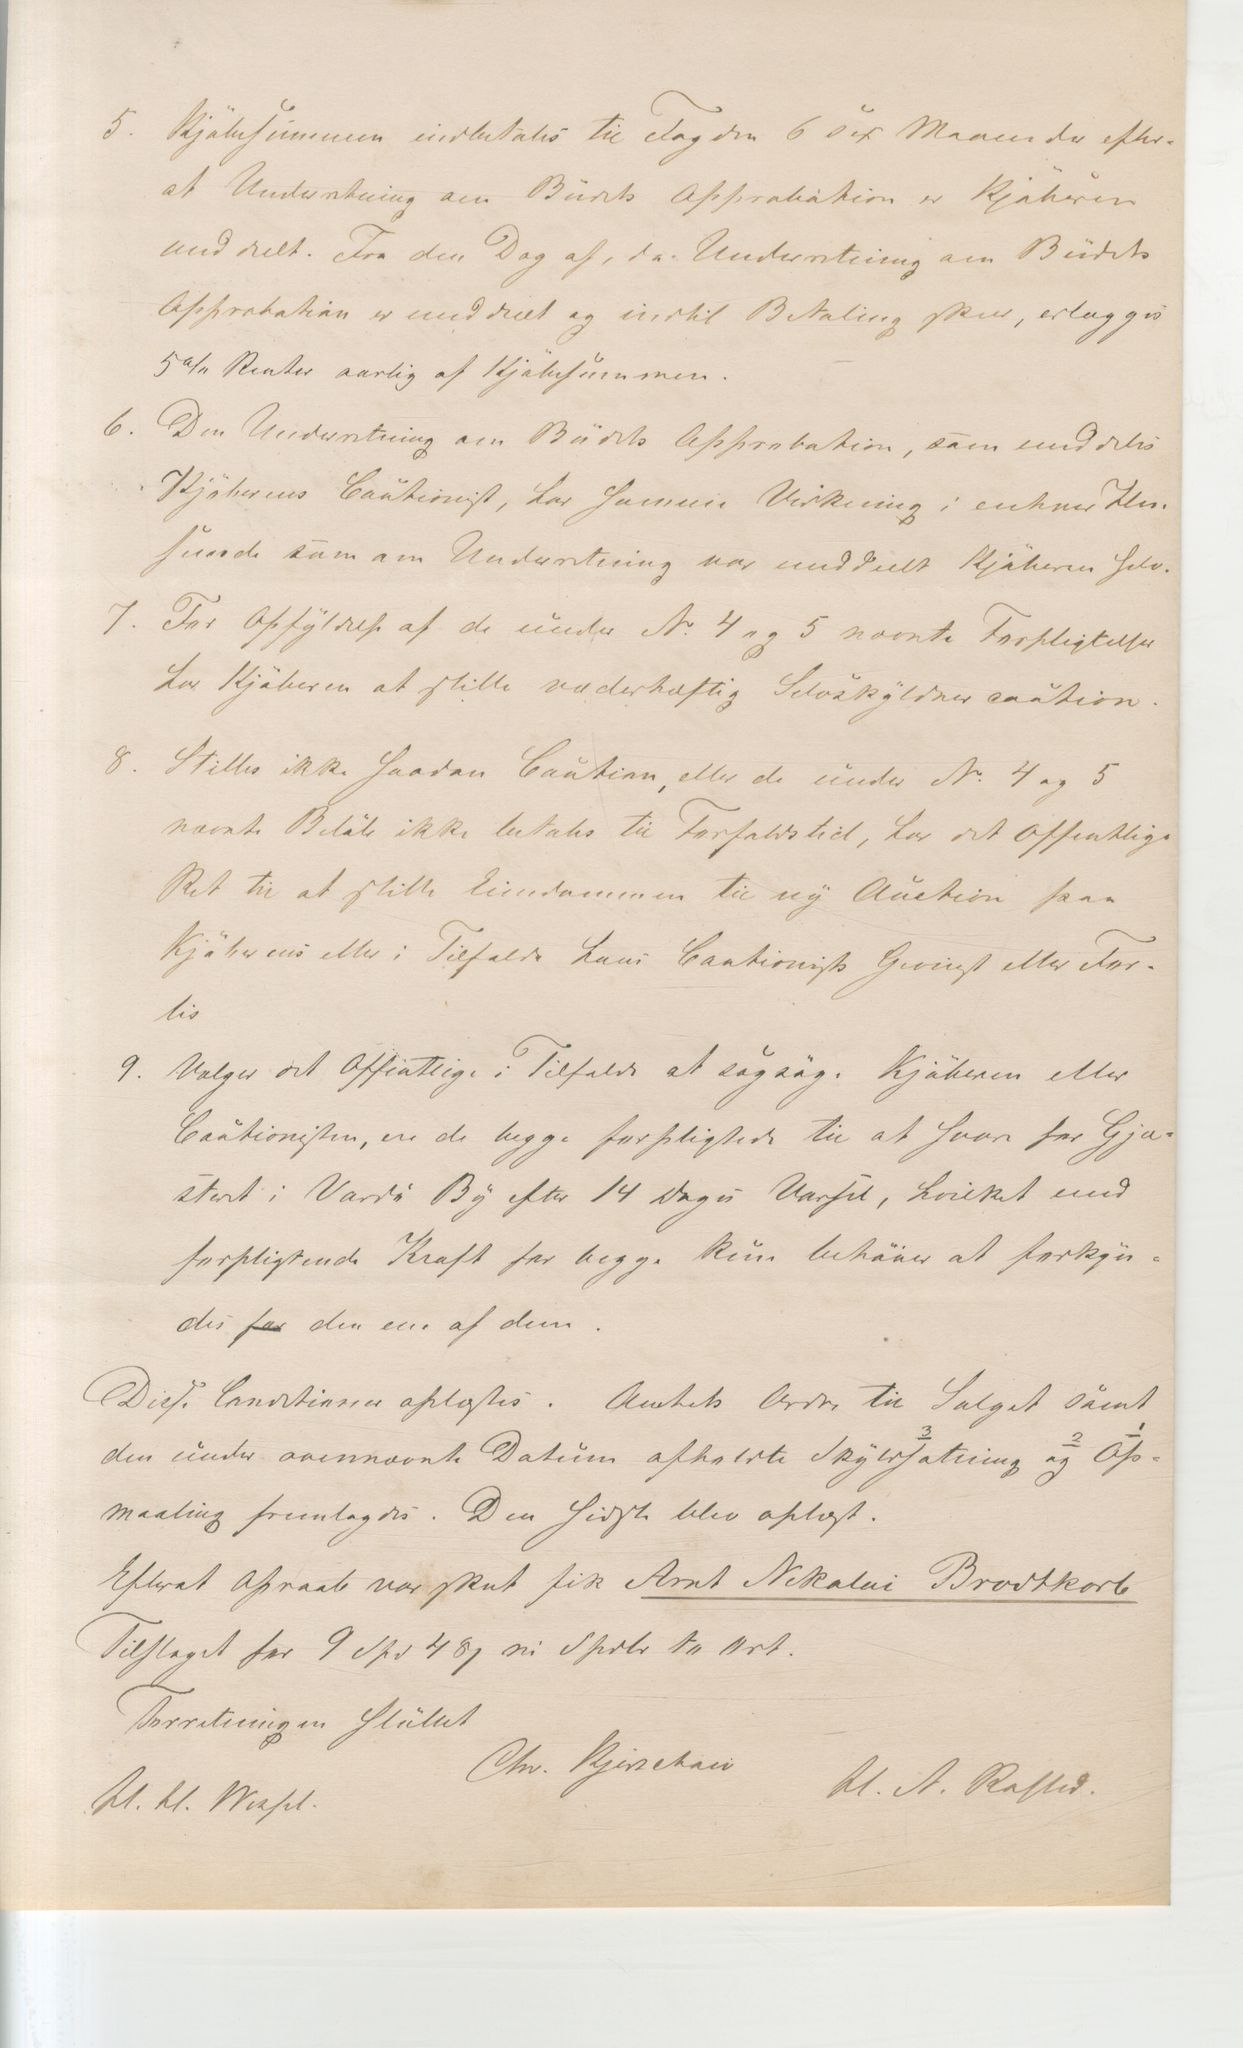 5. Kjöbesummen indbetales til Fogden 6 sex Maaneder efter-
at Underretning om Budets Approbation er Kjöberen
meddelt. Fra den Dag af, da Underretning om Budets
Approbation er meddelt og indtil Betaling skeer, erlægges
5 % Renter aarlig af Kjöbesummen.
6. Den Underretning om Budets Approbation, som meddeles
Kjöberens Cautionist, har samme Virkning i enhver Hen-
seende som om Underretning var meddelt Kjöberen selv.
7. For Opfyldelse af de under No. 4 og 5 nævnte Forpligtelser
har Kjöberen at stille vederhæftig Selvskyldnercaution.
8. Stilles ikke saadan Caution, eller de under No. 4 og 5
nævnte Belöb ikke betales til Forfaldstid, har det Offentlige
Ret til at stille Eiendommen til ny Auction paa
Kjöberens eller i Tilfælde hans Cautionists Gevinst eller For-
lis
9. Vælger det Offentlige i Tilfælde at sagsöge Kjöberen eller
Cautionisten, ere de begge forpligtede til at svare for Gjæ-
steret i Vardö By efter 14 Dages Varsel, hvilket med
forpligtende Kraft for begge kun behöver at forkyn-
des for den ene af dem.
Disse Conditioner oplæstes. Amtets Ordre til Salget samt
den under ovennævnte Datum afholdte Skyldsætning 3 og 2 Op- 1
maaling fremlagdes. Den sidste blev oplæst.
Efterat Opraab var skeet fik Arnt Nikolai Brodtkorb
Tilslaget for 9 Spd 48 ß ni Spdlr to Ort.
Forretningen sluttet
Chr. Kjerschow
H. H. Wessel. H. A. Rasted.